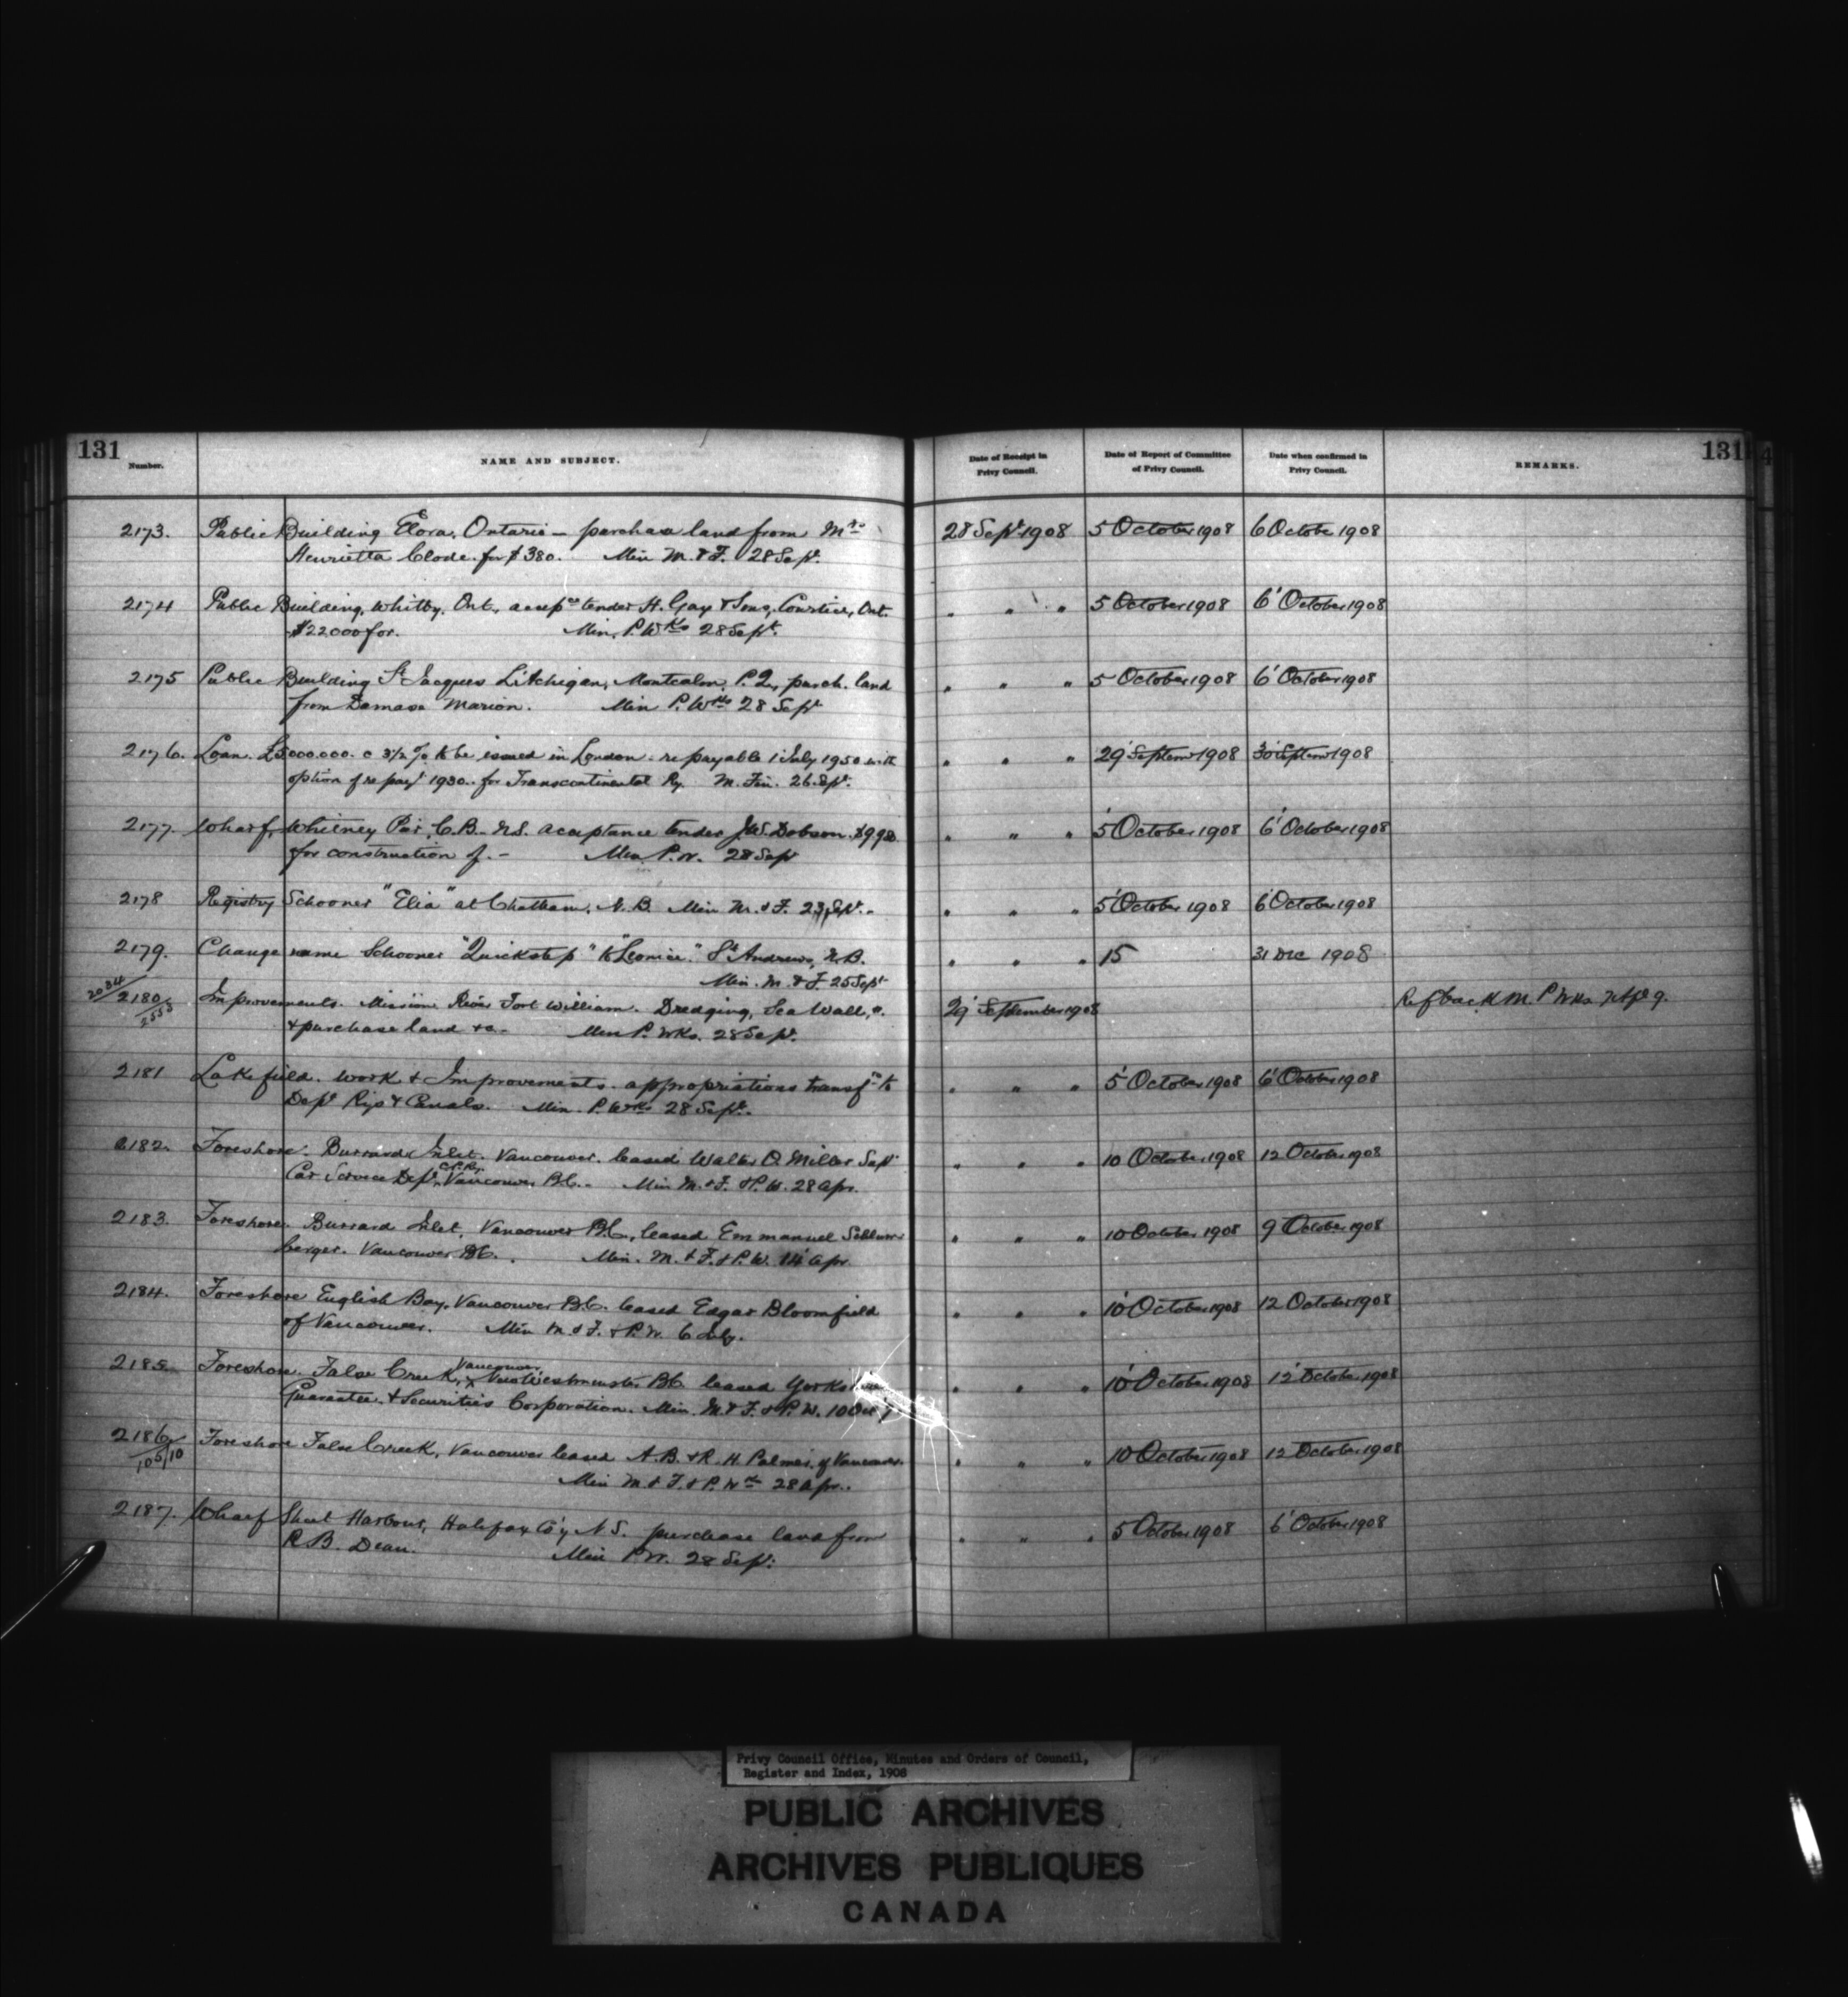 131 131
Number. NAME AND SUBJECT. Date of Receipt in Privy Council. Date of Report of Committee of Privy Council. Date when confirmed in Privy Council. REMARKS.
2173. Public Building Elora, Ontario - purchase land from Mrs 28 Sept 1908 5 October 1908 6 Octobe 1908
Henrietta Clode. for $380. Min M. & F. 28 Sept.
2174 Public Building, Whitby, Ont., accepce tender H. Gay & Sons, Courtice, Ont. " " " 5 October 1908 6' October 1908
$22000 for. Min. P. Wks 28 Sept.
2175 Public Building St Jacques L'Achigan, Montcalm, P.Q., purch. land " " " 5 October 1908 6' October 1908
from Damase Marion. Min P. Wks 28 Sept
2176. Loan. £5000.000. @ 3 1/2 % to be issued in London. repayable 1 July 1950 with " " " 29' Septemr 1908 30' Septemr 1908
option of repayt 1930. for Transcontinental Ry. M. Fin. 26 Sept.
2177. Wharf, Whitney Pier, C.B. N.S. acceptance tender J.W. Dobson. $9980 " " " 5' October 1908 6' October 1908
for construction of. - Min P.W. 28 Sept
2178 Registry Schooner "Elia" at Chatham, N.B. Min M. & F. 23 Sept. " " " 5' October 1908 6' October 1908
2179. Change name Schooner "Quickstep" to "Leonice." St Andrews, N.B. " " " 15 31 Dec 1908
Min. M. & F 25 Sept
2034/2180/2553 Improvements. Mission River Fort William. Dredging, Sea Wall, 29' September 1908 Ref back M. P Wks
& purchase land &c - Min P. Wks. 28 Sept.
2181 Lakefield. Work & Improvements. appropriations transfd to " " " 5' October 1908 6' October 1908
Dept Rys & Canals. Min. P. Wks 28 Sept.
2182. Foreshore. Burrard Inlet. Vancouver. leased Walter O. Miller Sup " " " 10 October 1908 12 October 1908
Car Service Dept, C.P.Ry. Vancouver B.C. - Min M. & F. & P.W. 28 Apr.
2183. Foreshore. Burrard Inlet, Vancouver B.C., leased Emmanuel " " " 10 October 1908 9 October 1908
berger. Vancouver B.C. Min. M. & F. & P.W. 14' Apr.
2184. Foreshore English Bay, Vancouver B.C. leased Edgar Bloomfield " " " 10' October 1908 12 October 1908
of Vancouver. Min M & F. & P.W. 6 July.
2185 Foreshore. False Creek, Vancouver New Westminster B.C. leased Yorkshire " " " 10' October 1908 12' October 1908
Guarantee & Securities Corporation. Min. M & F. & P.W. 10 Oct 7
2186/105/10 Foreshore False Creek, Vancouver leased A.B. & R.H. Palmer, of Vancouver. " " " 10 October 1908 12 October 1908
Min M & F. & P. Wks 28 Apr.
2187. Wharf Sheet Harbour, Halifax Co'y N.S. purchase land from " " " 5 October 1908 6' October 1908
R.B. Dean. Min P.W. 28 Sept.
Privy Council Office, Minutes and Orders of Council,
Register and Index, 1908
PUBLIC ARCHIVES
ARCHIVES PUBLIQUES
CANADA